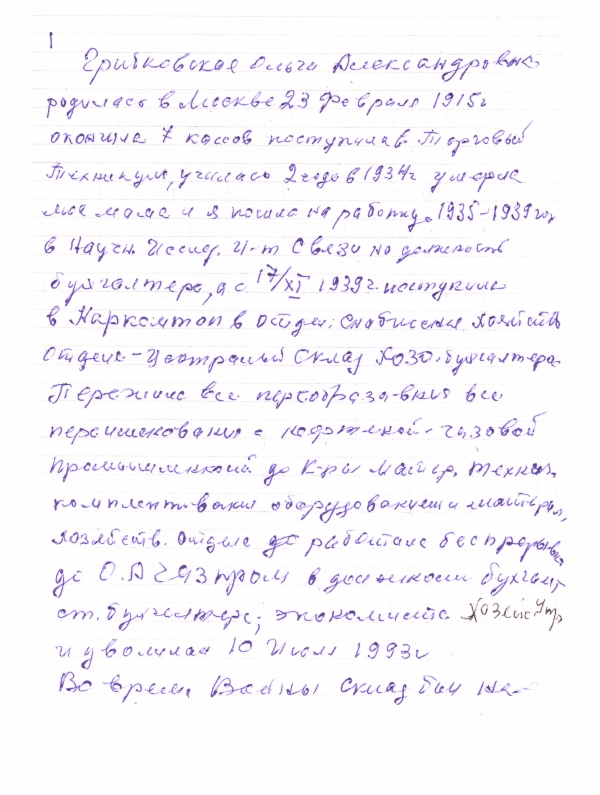 1
Грибковская Ольга Александровна
родилась в Москве 23 февраля 1915г
окончила 7 кассов поступила в Торговый
Техникум, училась 2 года в 1934г умерла
моя мама и я пошла на работку с 1935-1939 год
в Научн. Исслед. И-т Связи на должность
бухгалтера, а с 17/XI 1939г. поступила
в Наркомтоп в отдел: снабжения
отдела - Центральный склад ХОЗО. бухгалтера
Пережила все преобразования все
переименования с нефтяной - газовой
промышленной до К-ры Матер. технич.
комплектования оборудованием и материал,
хозяйств. отделе до работала беспрерывна
до О.А Газпром в должности бухгалт
ст. бухгалтера; экономиста Хозяйс Упр
и уволилась 10 Июля 1993г
Во время Войны склад был на-